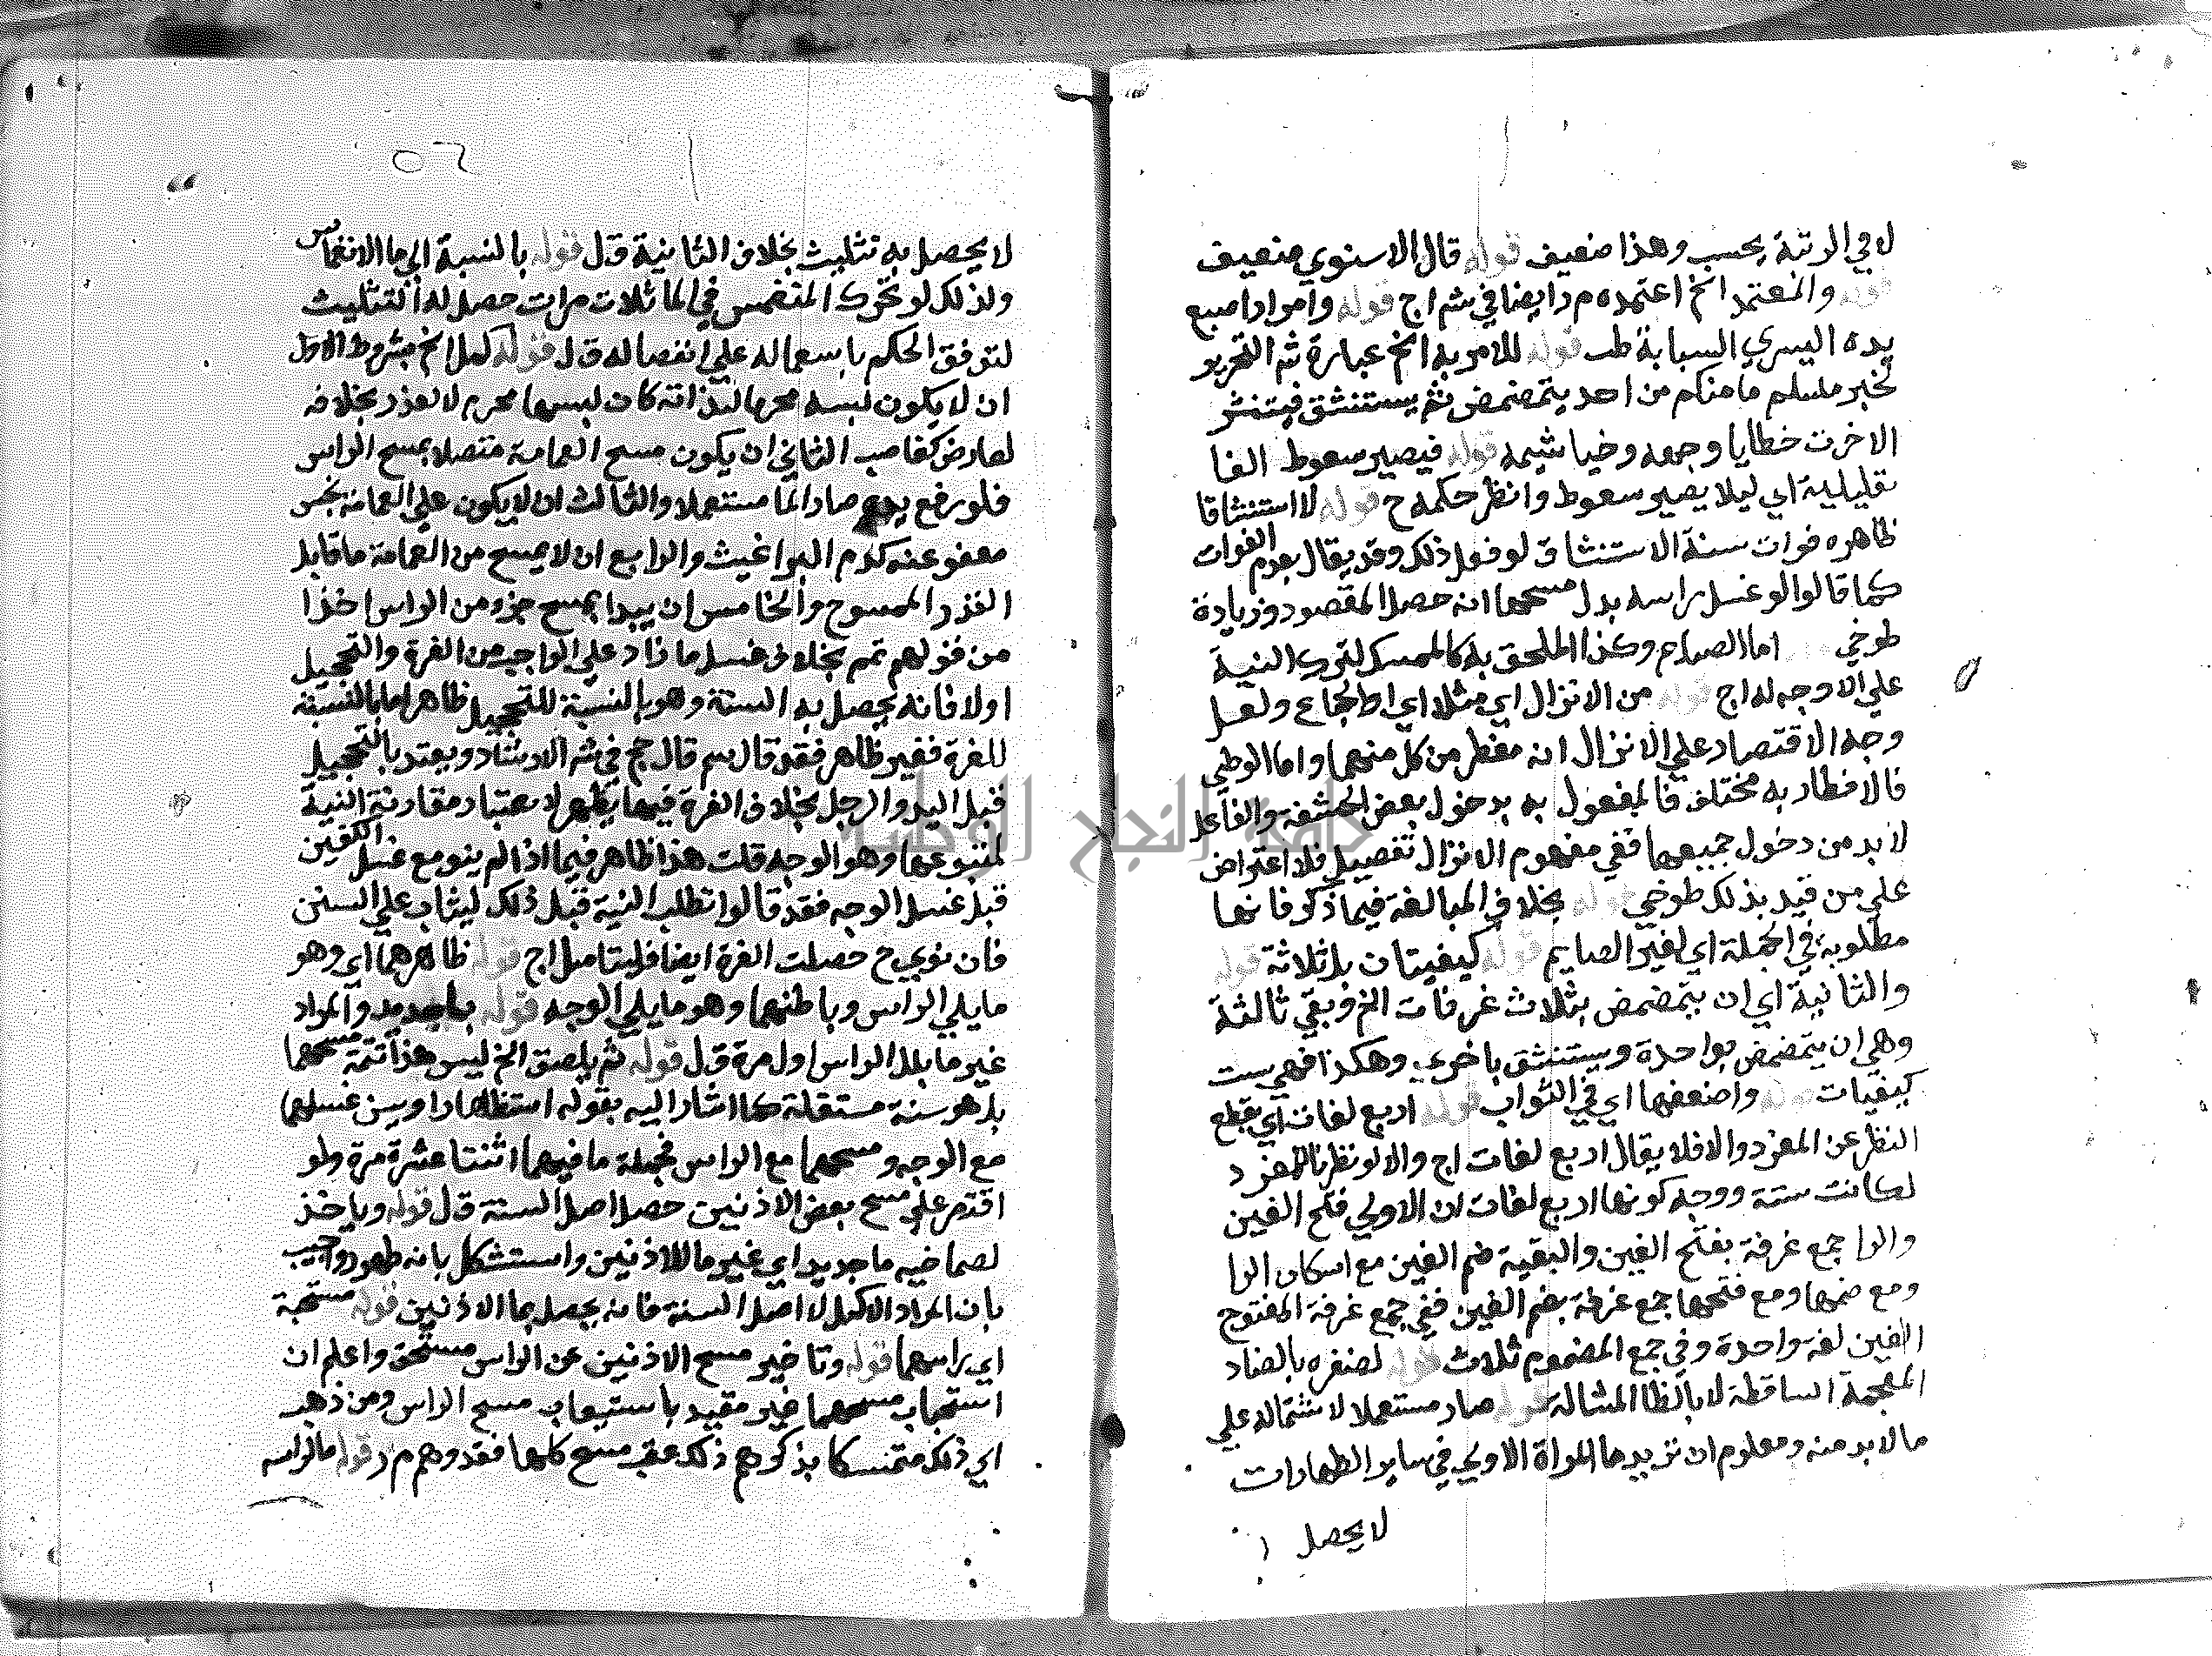 لا في الرتبة بحسب وهذا ضعيف قوله قال الاسنوي ضعيف
قوله والمعتمد الخ اعتمده م ر ايضا في شر اج قوله وامرار اصبع
يده اليسري السبابة طب قوله للامر به الخ عبارة شر التحرير
لخبر مسلم ما منكم من احد يتمضمض ثم يستنشق فيتنثر
الا خرت خطايا وجهه وخياشيمه قوله فيصير سعوط الفا
تعليلية اي ليلا يصير سعوط وانظر حكمه ح قوله لا استنشاقا
ظاهره فوات سنة الاستنشاق لو فعل ذلك وقد يقال بعدم الفوات
كما قالوا لو غسل راسه بدل مسحها انه حصل المقصود وزيادة
طوخي اما الصايم وكذا الملحق به كالممسك لترك النية
علي الاوجه له اج قوله من الانزال اي مثلا اي او الجماع ولعل
وجه الاقتصار علي الانزال انه مفطر من كل منهما واما الوطي
فالافطار به مختلف فالمفعول به بدخول بعض الحشفة والفاعل
لا بد من دخول جميعها ففي مفهوم الانزال تفصيل فلا اعتراض
علي من قيد بذلك طوخي قوله بخلاف المبالغة فيما ذكر فانها
مطلوبة في الجملة اي لغير الصايم قوله كيفيتان بل ثلاثة قوله
والثانية اي ان يتمضمض بثلاث غرفات الخ وبقي ثالثة
وهي ان يتمضمض بواحدة ويستنشق باخري وهكذا فهي ست
كيفيات قوله واضعفها اي في الثواب قوله اربع لغات اي بقطع
النظر عن المفرد والا فلا يقال اربع لغات اج والا لو نظر للمفرد
لكانت ستة ووجه كونها اربع لغات ان الاولي فتح الغين
والرا جمع غرفة بفتح الغين والبقية ضم الغين مع اسكان الرا
ومع ضمها ومع فتحها جمع غرفة بضم الغين ففي جمع غرفة المفتوح
الغين لغة واحدة وفي جمع المضموم ثلاث قوله لضفره بالضاد
المعجمة الساقطة لا بالظا المشالة قوله صار مستعملا لاشتماله علي
ما لا بد منه ومعلوم ان تزيدها المراة الاولي في ساير الطهارات
لا يحصل
٥٦
لا يحصل به تثليث بخلاف الثانية ق ل قوله بالنسبة الي ما الانغماس
ولذلك لو تحرك المنغمس في الما ثلاث مرات حصل له التثليث
لتوقف الحكم باستعماله علي انفصاله ق ل قوله كمل الخ بشروط الاول
ان لا يكون لبسه محرما لذاته كان لبسها محرم لا لعذر بخلافه
لعارض كغاصب الثاني ان يكون مسح العمامة متصلا بمسح الراس
فلو رفع يده صار الما مستعملا والثالث ان لا يكون علي العمامة نجس
معفو عنه كدم البراغيث والرابع ان لا يمسح من العمامة ما قابل
القدر الممسوح والخامس ان يبدا بمسح جزء من الراس اخذا
من قولهم تمم بخلاف غسل ما زاد علي الواجب من الغرة والتحجيل
اولا فانه يحصل به السنة وهو بالنسبة للتحجيل ظاهر اما بالنسبة
للغرة فغير ظاهر فقد قال سم قال حج في شر الارشاد ويعتد بالتحجيل
قبل اليد والرجل بخلاف الغرة فيما يظهر لاعتبار مقارنة النية
لمتبوعها وهو الوجه قلت هذا ظاهر فيما اذا لم ينو مع غسل الكفين
قبل غسل الوجه فقد قالوا تطلب النية قبل ذلك ليثاب علي السنن
فان نوي ح حصلت الغرة ايضا فليتامل اج قوله ظاهرهما اي وهو
ما يلي الراس وباطنهما وهو ما يلي الوجه قوله بما جديد والمراد
غير ما بلل الراس اول مرة ق ل قوله ثم يلصق الخ ليس هذا تتمة مسحهما
بل هو سنة مستقلة كما اشار اليه بقوله استظهارا ويسن غسلهما
مع الوجه ومسحهما مع الراس فجملة ما فيهما اثنتا عشرة مرة ولو
اقتصر علي مسح بعض الاذنين حصل اصل السنة ق ل قوله وياخذ
لصماخيه ما جديد اي غير ما للاذنين واستشكل بانه طهور واجيب
بان المراد الاكمل لا اصل السنة فانه يحصل بما الاذنين قوله مستحبة
اي براسهما قوله وتاخير مسح الاذنين عن الراس مستحق واعلم ان
استحباب مسحهما غير مقيد باستيعاب مسح الراس ومن ذهب
الي ذلك متمسكا بذكرهم ذلك عقب مسح كلها فقد وهم م ر قوله
جامعة النجاح الوطنية